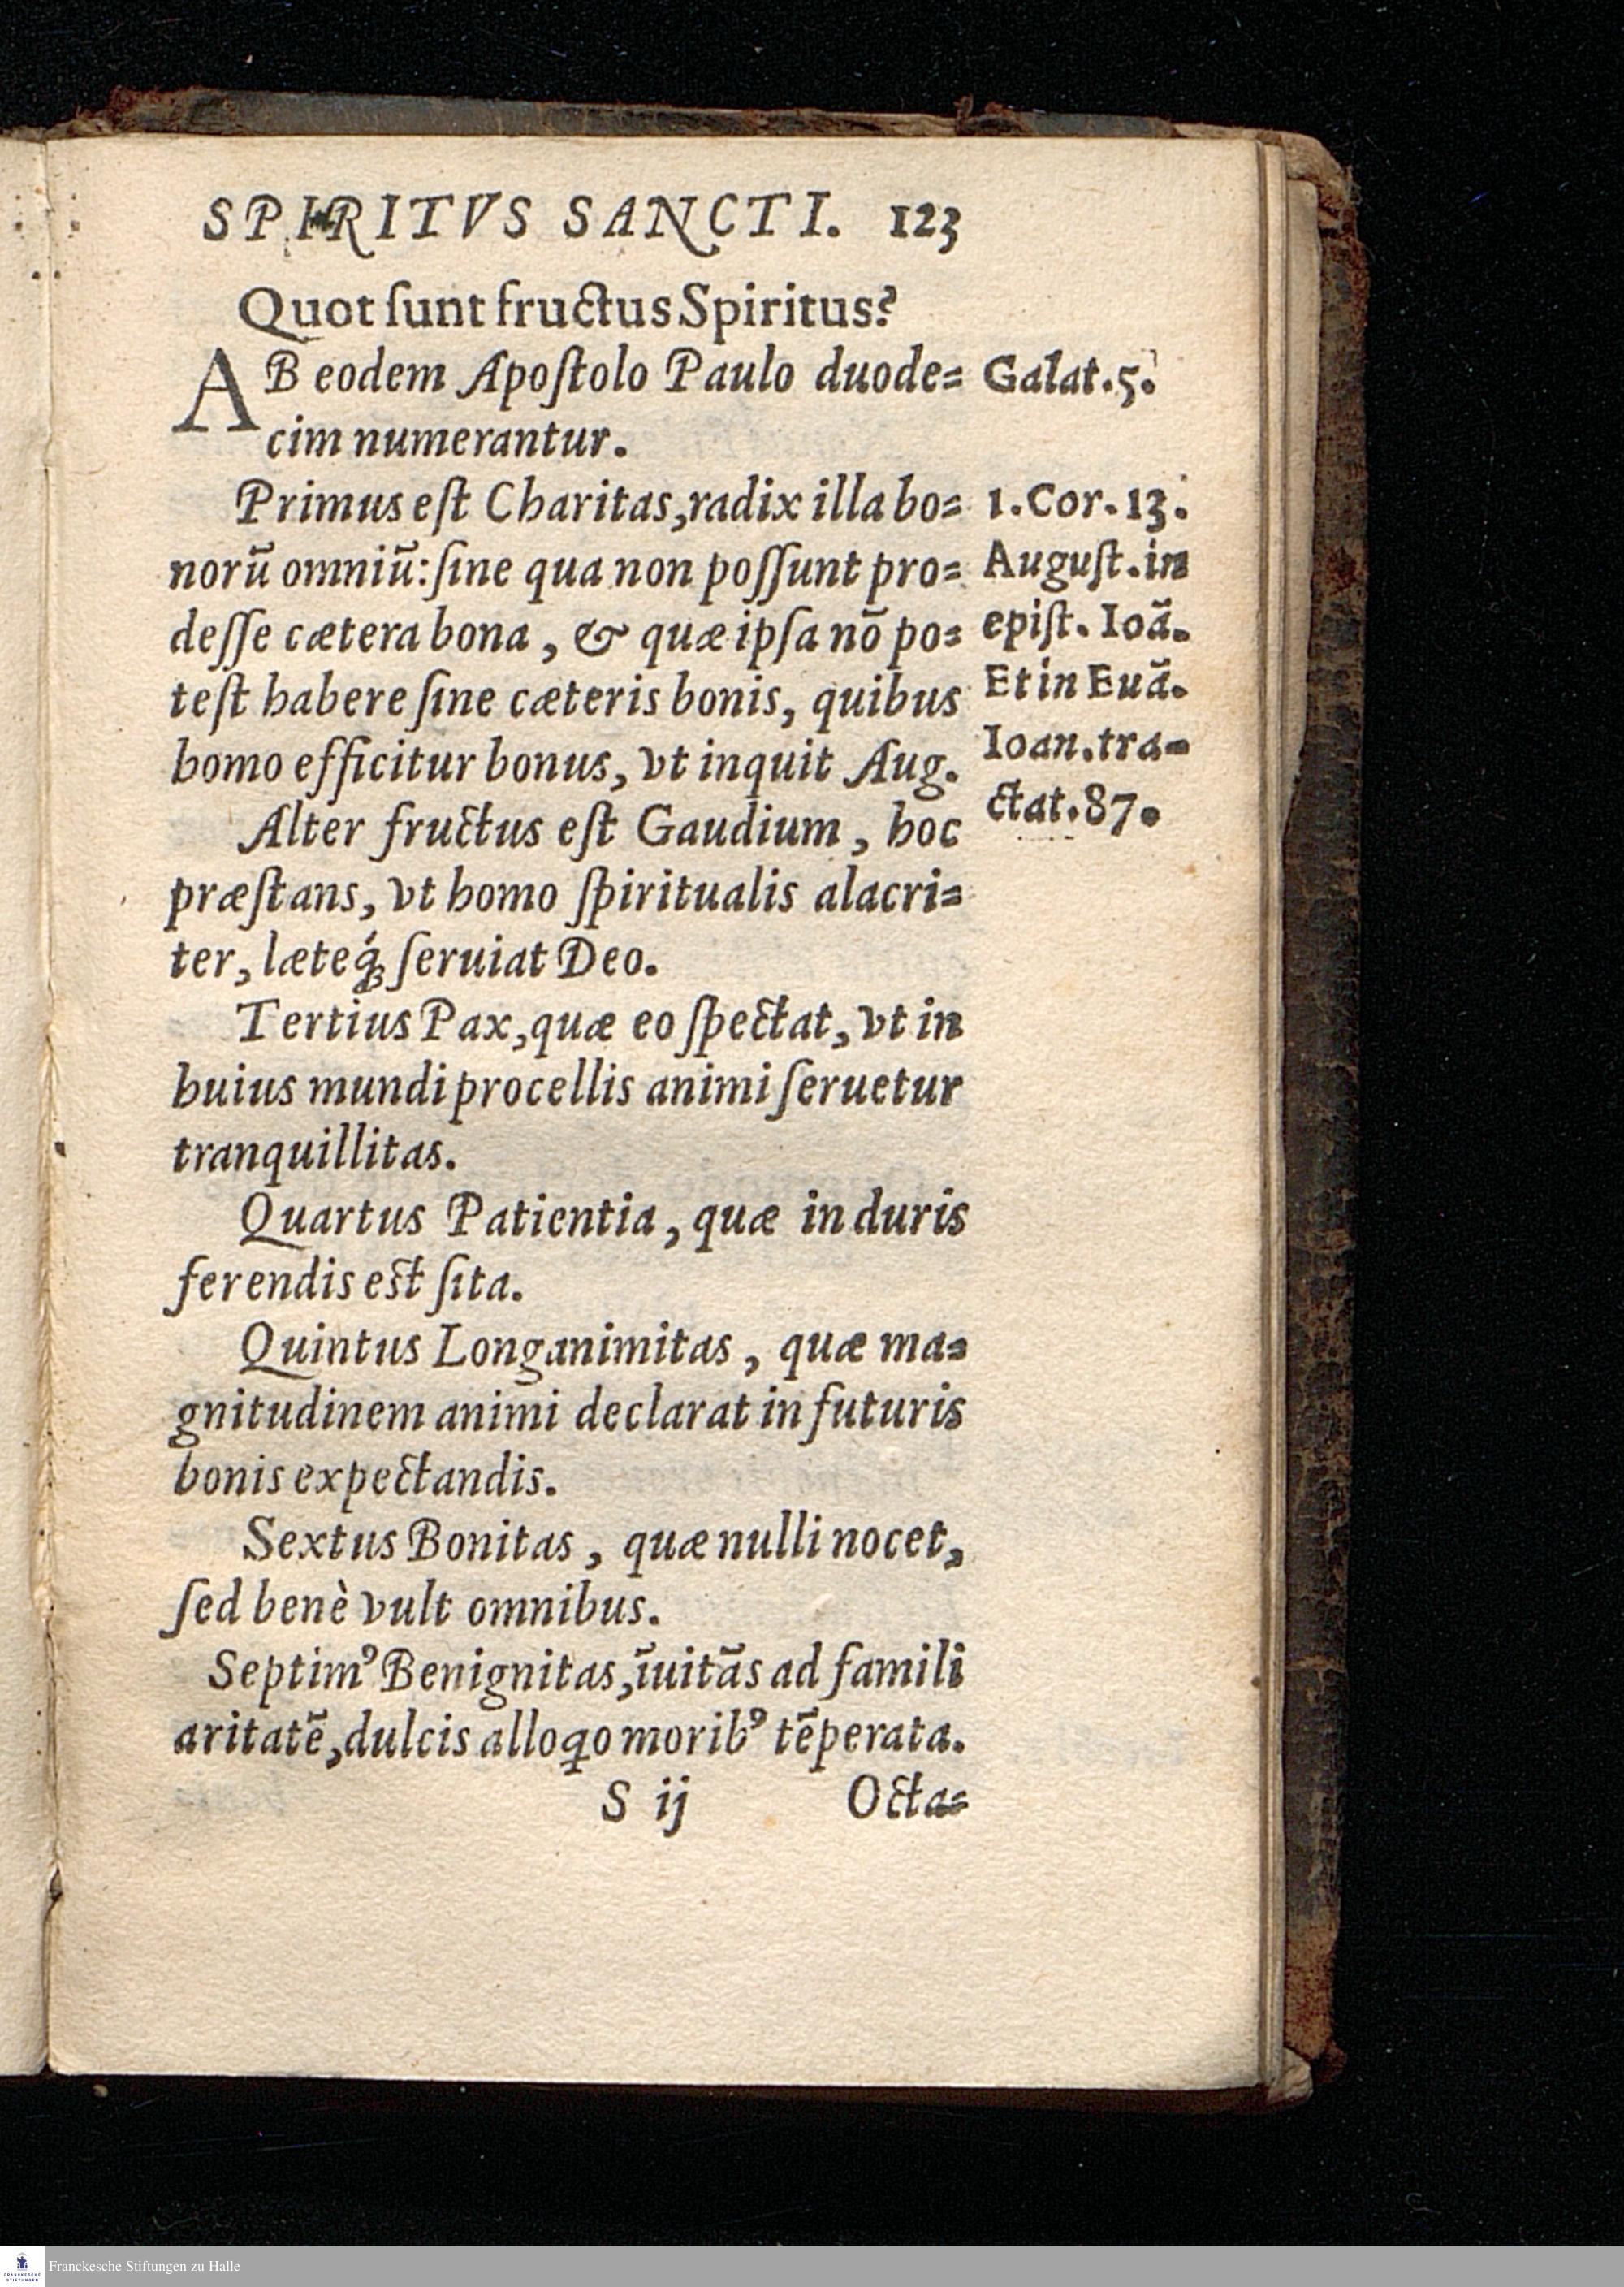 SPIRITVS SANCTI. 123
Quot ſunt fructus Spiritus?
AB eodem Apoſtolo Paulo duode=
cim numerantur.
Primus eſt Charitas, radix illa bo=
norū omniū: ſine qua non poſſunt pro=
deſſe cætera bona, & quæ ipſa nō po=
teſt habere ſine cæteris bonis, quibus
homo efficitur bonus, vt inquit Aug.
Alter fructus eſt Gaudium, hoc
præſtans, vt homo ſpiritualis alacri=
ter, læteq́ꝫ ſeruiat Deo.
Tertius Pax, quæ eo ſpectat, vt in
huius mundi procellis animi ſeruetur
tranquillitas.
Quartus Patientia, quæ in duris
ferendis eſt ſita.
Quintus Longanimitas, quæ ma=
gnitudinem animi declarat in futuris
bonis expectandis.
Sextus Bonitas, quæ nulli nocet,
ſed benè vult omnibus.
Septimꝰ Benignitas, īuitās ad famili
aritatē, dulcis alloꝗo moribꝰ tēperata.
S ij Octa=
Galat. 5.
1. Cor. 13.
Auguſt. in
epiſt. Ioā.
Et in Euā.
Ioan. tra=
ctat. 87.
FRANCKESCHE
STIFTUNGEN
Franckesche Stiftungen zu Halle